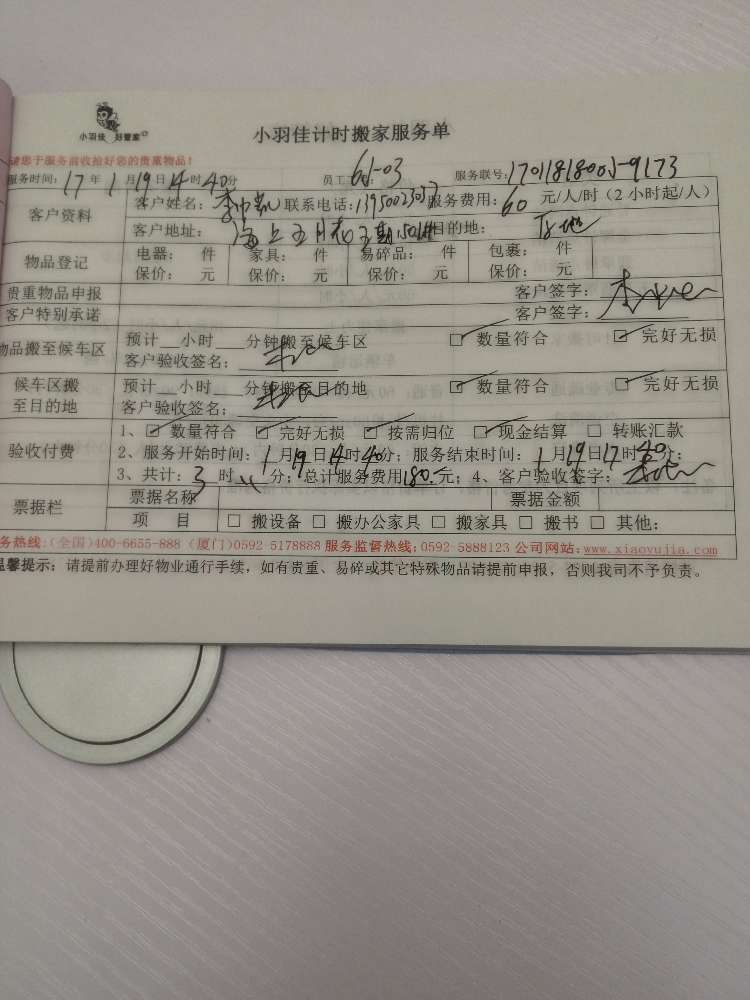 小羽佳 好管家
小羽佳计时搬家服务单
请您于服务前收拾好您的贵重物品!
服务时间: 17 年 1 月 19 日 14 时 40 分 员工 61-03 服务联号:
客户资料 客户姓名: 李 联系电话: 服务费用: 60 元/人/时 (2 小时起/人)
客户地址: 海上五月花五期 目的地:
物品登记 电器: 件 家具: 件 易碎品: 件 包裹: 件
保价: 元 保价: 元 保价: 元 保价: 元
贵重物品申报 客户签字:
客户特别承诺 客户签字:
物品搬至候车区 预计__小时___分钟搬至候车区 数量符合 完好无损
客户验收签名:
候车区搬至目的地 预计__小时___分钟搬至目的地 数量符合 完好无损
客户验收签名:
验收付费 1、 数量符合 完好无损 按需归位 现金结算 转账汇款
2、服务开始时间: 1 月 19 日 14 时 40 分; 服务结束时间: 1 月 19 日 17 时 40 分;
3、共计: 3 时 分; 总计服务费用 180. 元; 4、客户验收签字:
票据栏 票据名称 票据金额
项 目 搬设备 搬办公家具 搬家具 搬书 其他:
务热线:(全国)400-6655-888 (厦门)0592 5178888 服务监督热线: 0592-5888123 公司网站: www.xiaoyujia.com
温馨提示: 请提前办理好物业通行手续, 如有贵重、易碎或其它特殊物品请提前申报, 否则我司不予负责。